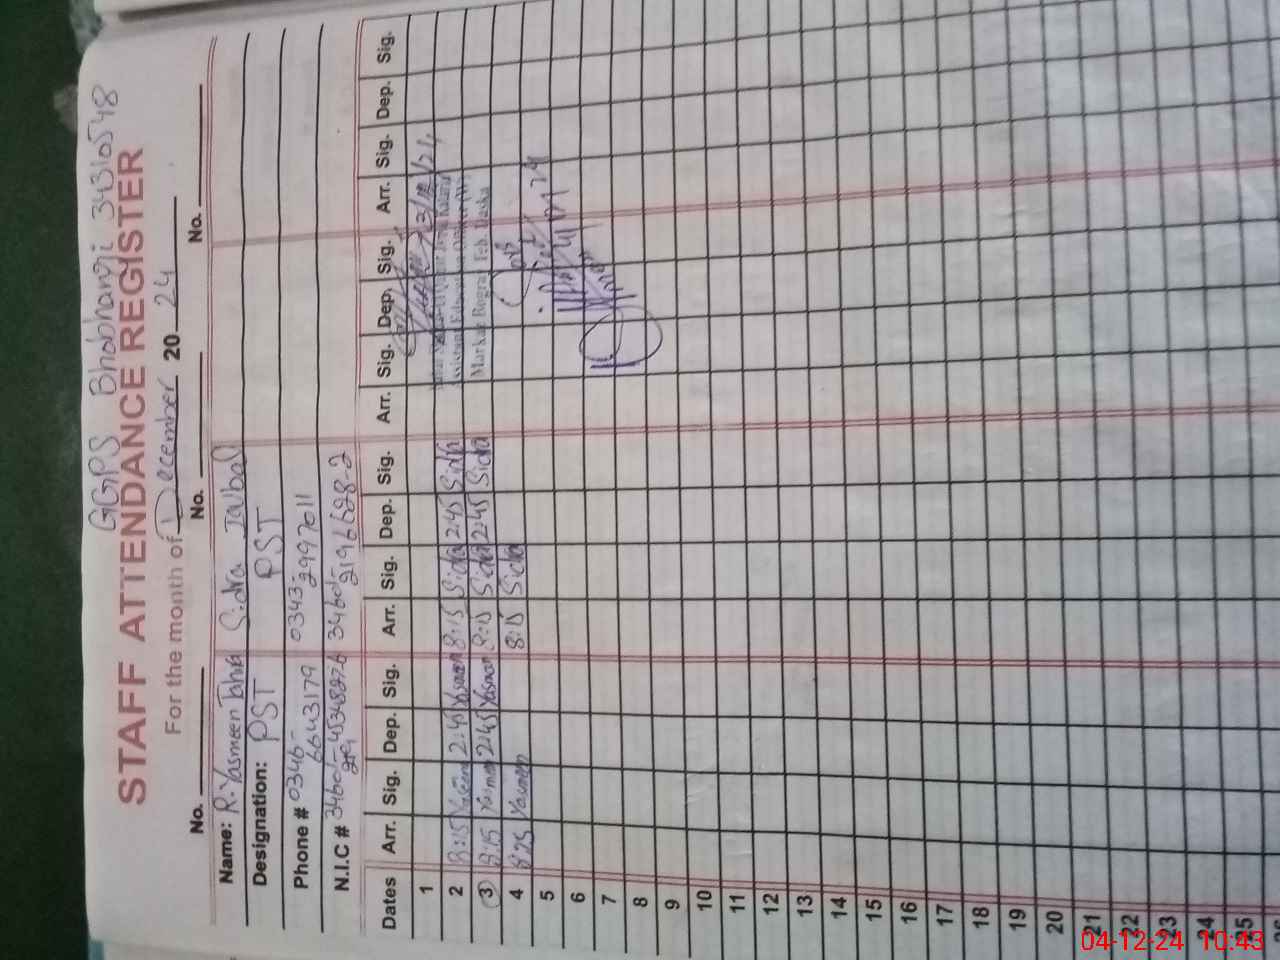 GGPS Bhobhangi 34310548
STAFF ATTENDANCE REGISTER
For the month of December 2024
No. No. No.
Name: R. Yasmeen Tahir Sidra Iqbal
Designation: PST PST
Phone # 0346- 6643179 0343- 2997011
N.I.C #
Dates Arr. Sig. Dep. Sig. Arr. Sig. Dep. Sig. Arr. Sig. Dep. Sig. Arr. Sig. Dep. Sig.
1
2 8:15 Yasmeen 2:45 Yasmeen 8:15 Sidra 2:45 Sidra
3 8:15 Yasmeen 2:45 Yasmeen 8:15 Sidra 2:45 Sidra
4 8:25 Yasmeen 8:15 Sidra
Assistant Education Officer (W)
Markaz
5
6
7
8
9
10
11
12
13
14
15
16
17
18
19
20
21
22
23
24
25
04-12-24 10:43